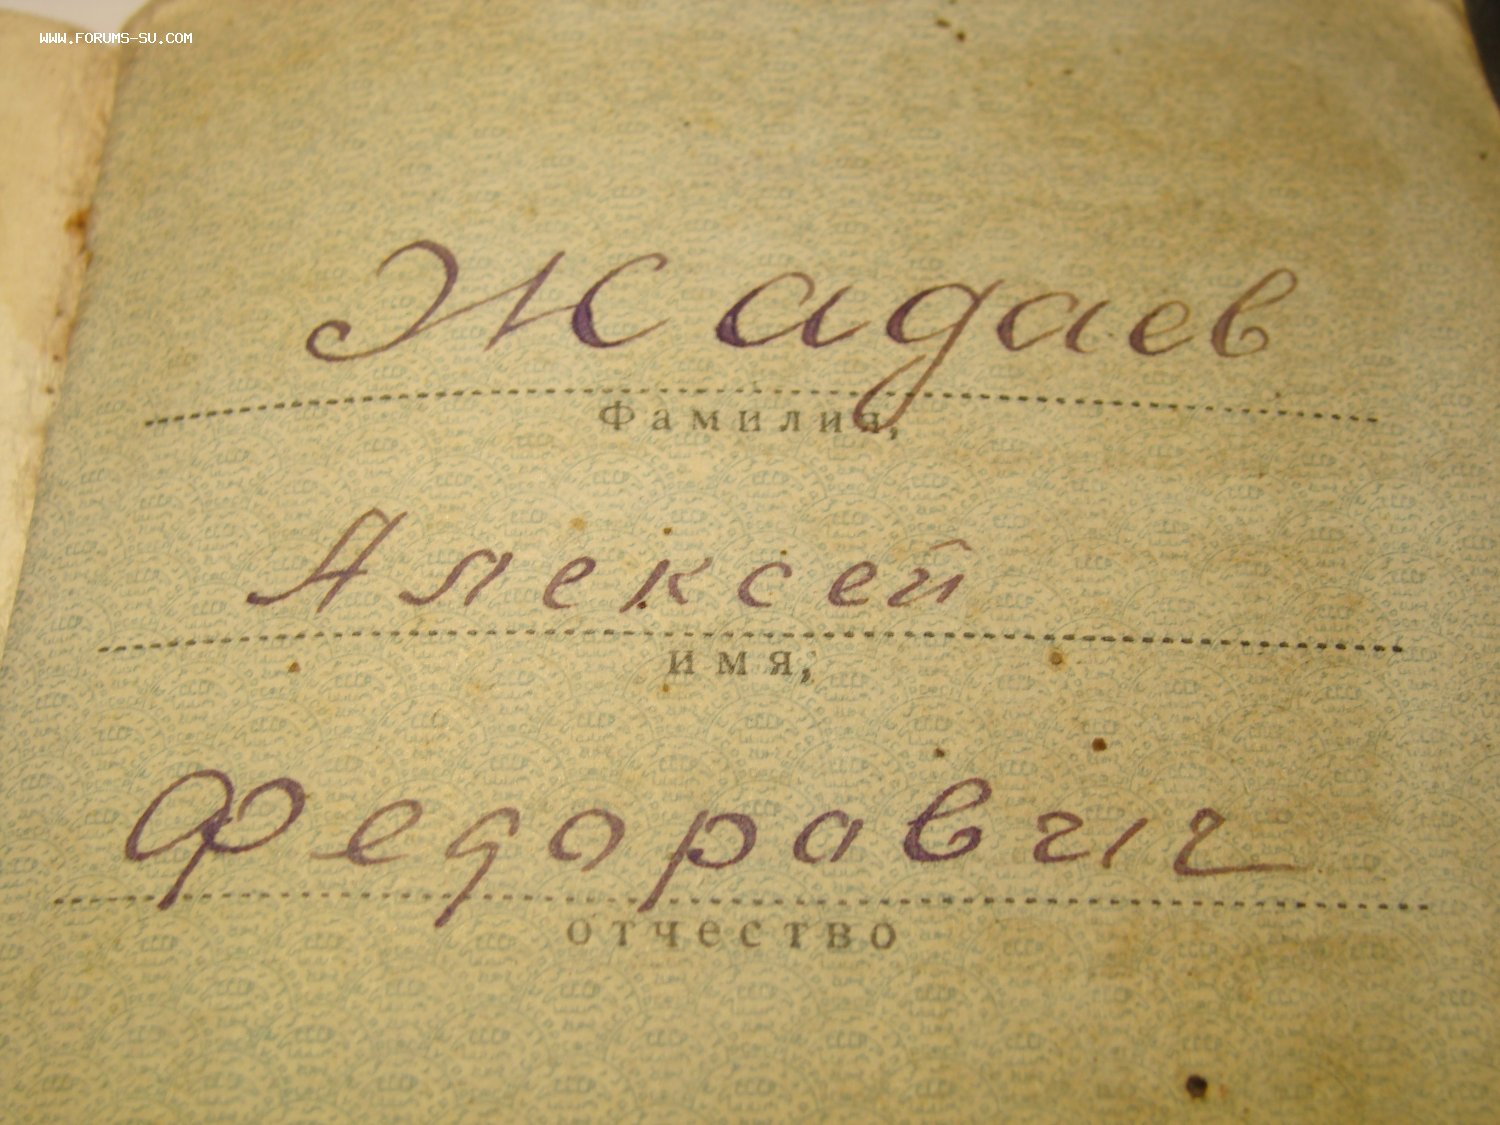 WWW.FORUMS-SU.COM
Жадаев
Фамилия,
Алексей
имя,
Федоравич
отчество